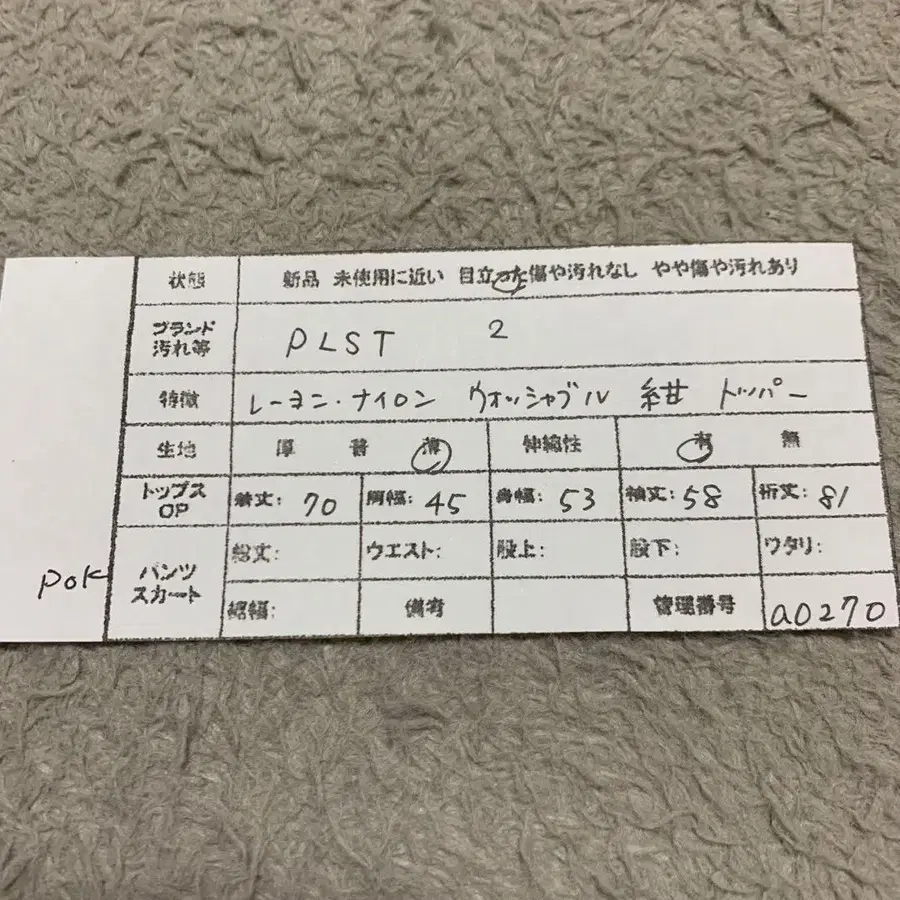 状態 新品 未使用に近い 目立った傷や汚れなし やや傷や汚れあり
ブランド
汚れ等 PLST 2
特徴 レーヨン・ナイロン ウォッシャブル 紺 トッパー
生地 厚 普 薄 伸縮性 有 無
トップス
OP 着丈: 70 肩幅: 45 身幅: 53 袖丈: 58 裄丈: 81
総丈: ウエスト: 股上: 股下: ワタリ:
パンツ
スカート
裾幅: 備考 管理番号 a0270
pok